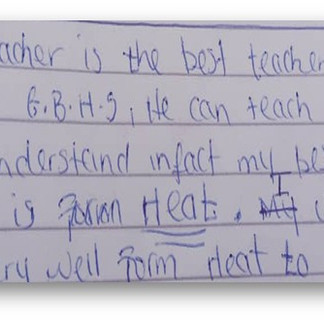 acher is the best teacher
G.B.H.S, He can teach
nderstand infact my be
is Heat. I
ry well form Heat to